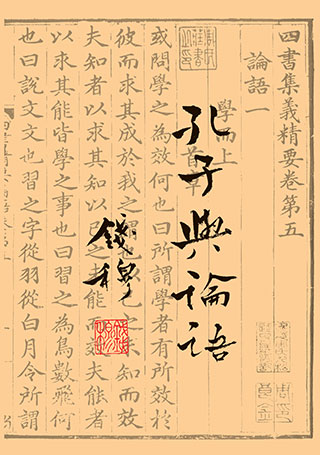 孔子與論語
錢穆
四書集義精要卷第五
論語一
學而上
或問學之為效何也曰所謂學者有所效於
彼而求其成於我之謂也以己之未知而效
夫知者以求其知以己之未能而效夫能者
以求其能皆學之事也曰習之為鳥數飛何
也曰說文文也習之字從羽從白月令所謂